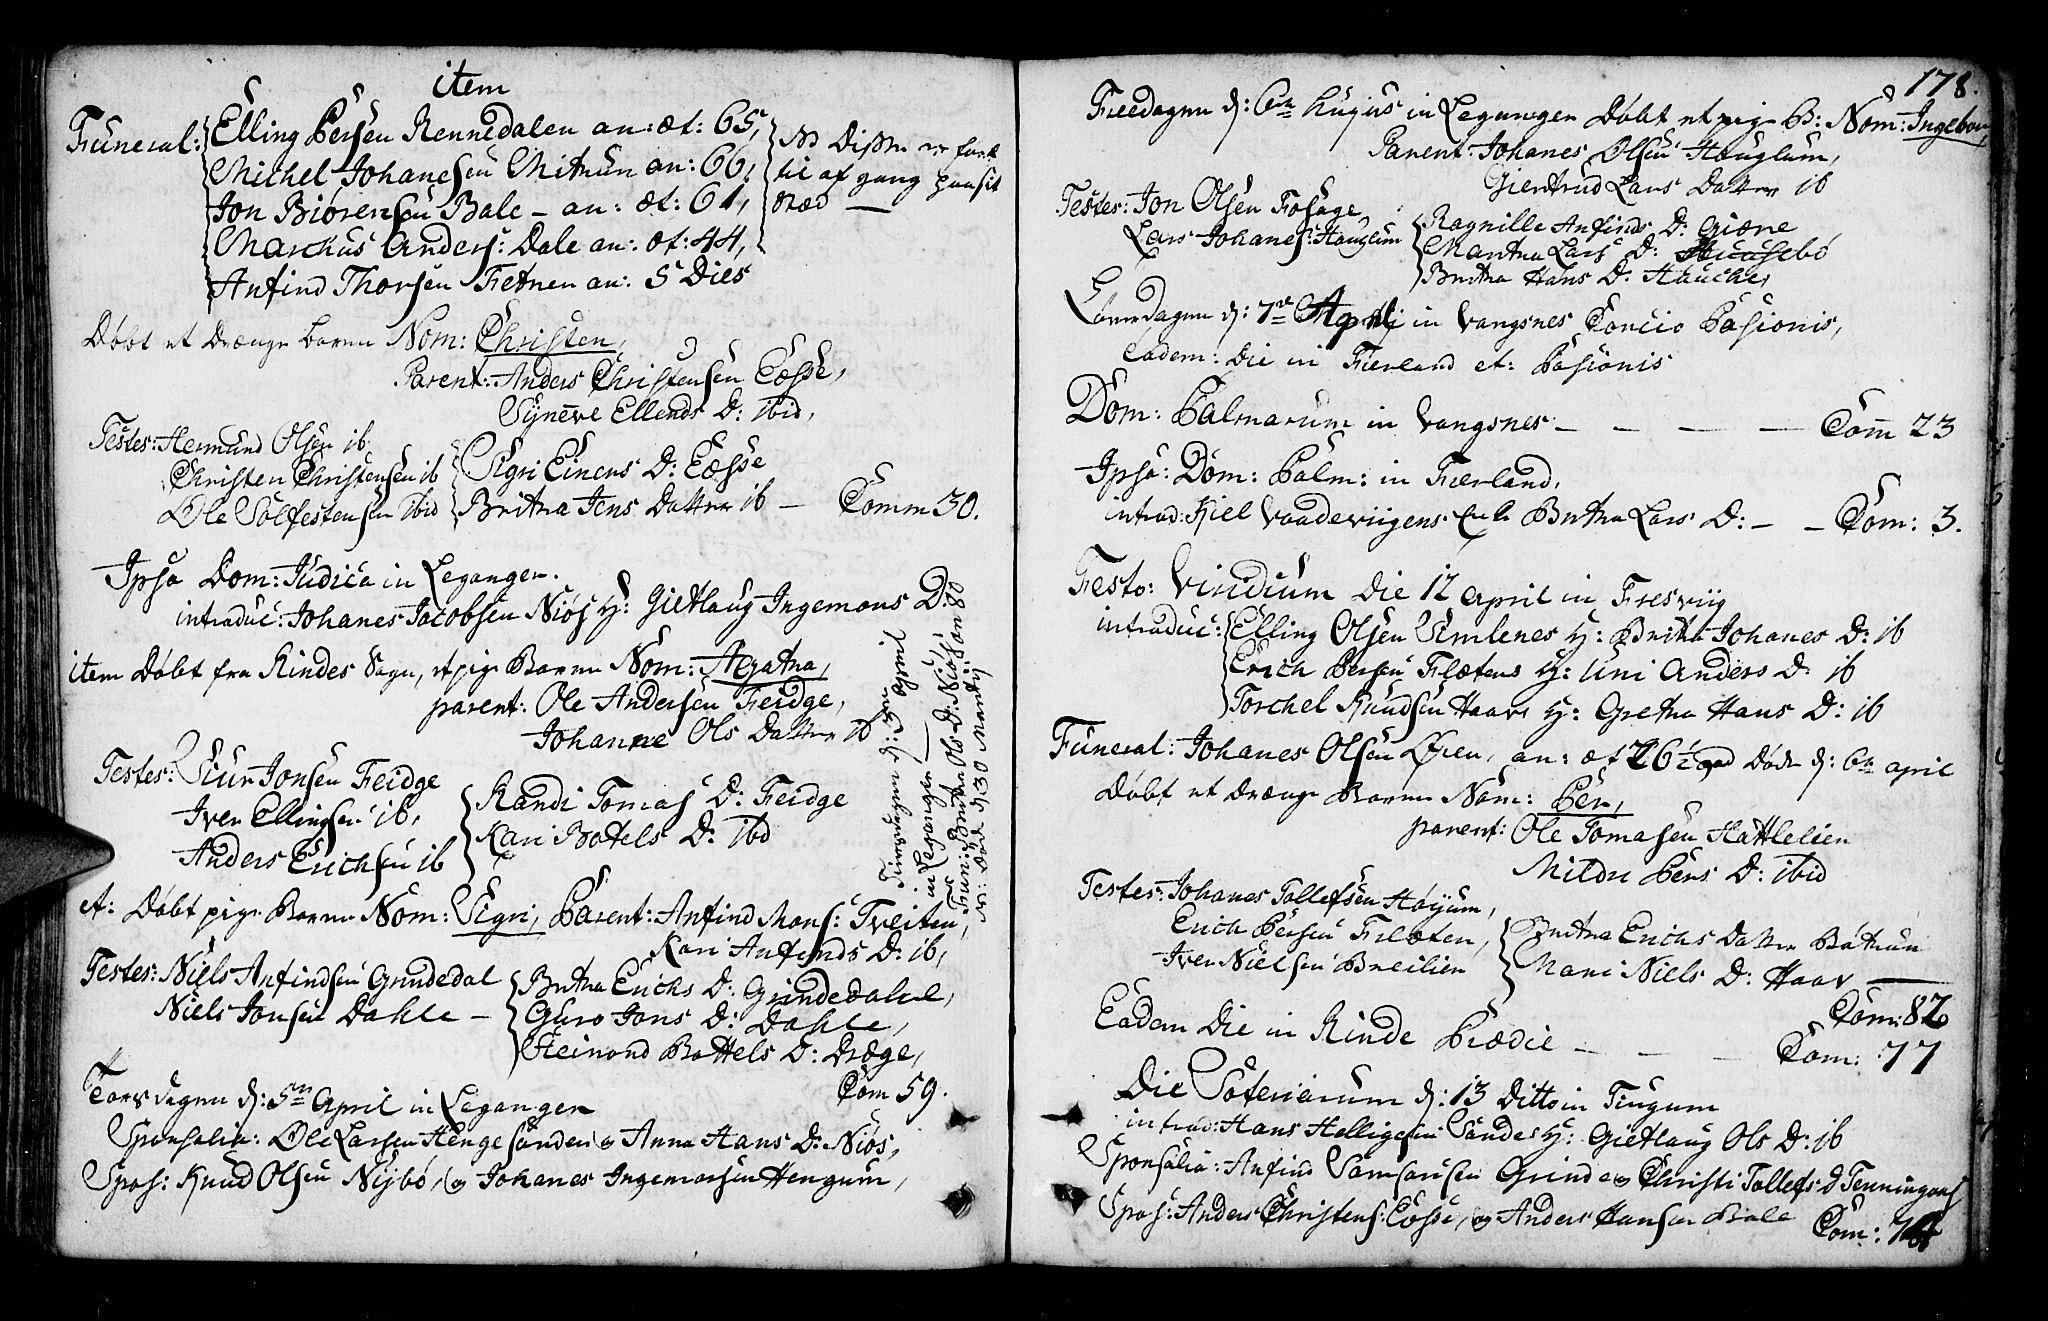 item
Funeral: Elling Persen Rennedalen an: æt: 65,
Michel Johanesen Mitun an: 66,
Jon Biørensen Bale - an: æt: 61,
Marchus Anders: Dale an: æt: 44,
Anfind Thorsen Fetnen an: 5 Dies
NB Disse er
til af gang
stæd —
Døbt et Drænge baren Nom: Christen,
Parent: Anders Christensen Eæsse,
Syneve Ellends D: ibid,
Testes: Hermund Olsen ib.
Christen Christensen ib
Ole Solfestensen ibid
Sigri Einers D: Eæsse
Britha Jens Datter ib — Comm 30.
Ipso Dom: Judica in Legangen.
introduc: Johanes Jacobsen Niøs H: Gietlaug Ingemans D:
item Døbt fra Rindes Sogn, et pige Baren Nom: Agatha,
parent: Ole Andersen Feidge,
Johanne Ols Datter ib
Testes: Siur Jonsen Feidge
Iver Ellingsen ib,
Anders Erichsen ib
Randi Tomas D: Feidge
Kari Botels D: ibd
Tiirsdagen d: 3en April
in Legangen —
Fun: Britha Ols D: Niøs an 80
Død d: 30 Martij
et: Døbt pige Baren Nom: Sigri, Parent: Anfind Mons: Tveiten,
Kari Anfinds D: ib,
Testes: Niels Anfindsen Grindedal
Niels Jonsen Dahle —
Britha Erichs D: Grindedahl,
Guro Jons D: Dahle,
Steinond Bottels D: Dræge,
Com 59.
Torsdagen d: 5en April in Legangen
Sponsalia: Ole Larsen Hengesanden & Anna Hans D: Niøs,
Spos: Knud Olsen Nybø, & Johanes Ingemarsen Hengum,
178.
Freedagen d: 6te hujus in Legangen Døbt et pige B: Nom: Ingebor,
Parent: Johanes Olsen Houglum,
Giertrud Lars Datter ib
Testes: Jon Olsen Fosage,
Lars Johanes: Houglum
Ragnille Anfinds D: Giære
Martha Lars D: Huusebø
Britha Hans D: Hauche,
Løverdagen d: 7de Aprilj in Vangsnes Concio Pasionis,
eadem: Die in Fierland et: Pasionis
Dom: Palmarum in Vangsnes — — — — Com 23
Ipso: Dom: Palm: in Fierland,
introd: Kiel Vaadeviigens Enke Britha Lars D: — — Com: 3.
Festo: Viridium Die 12 april in Fresviig
introduc: Elling Olsen Simlenes H: Britha Johanes D: ib
Erich Persen Flætens H: Uni Anders D: ib
Torchel Knudsen Haave H: Gretha Hans D: ib
Funeral: Johanes Olsen Øren, an: æt Døde d: 6te april
Døbt et Drænge Baren Nom: Per,
parent: Ole Tomasen Hattlelien
Mildri Pers D: ibid
Testes: Johanes Tollefsen Høyum,
Erich Persen Flæten,
Iver Nielsen Breilien
Britha Erichs Datter Bøtun
Mari Niels D: Haav —
Com: 82
Eadem Die in Rinde Prædic — — — Com: 77
Die Soteriarum d: 13 Ditto in Tiugum
introd: Hans Helligesen Sande H: Gietlaug Ols D: ib
Sponsalia: Anfind Samsonsen Grinde & Christi Tollefs D
Spos: Anders Christens: Eæsse, & Anders Hansen Bale
Com: